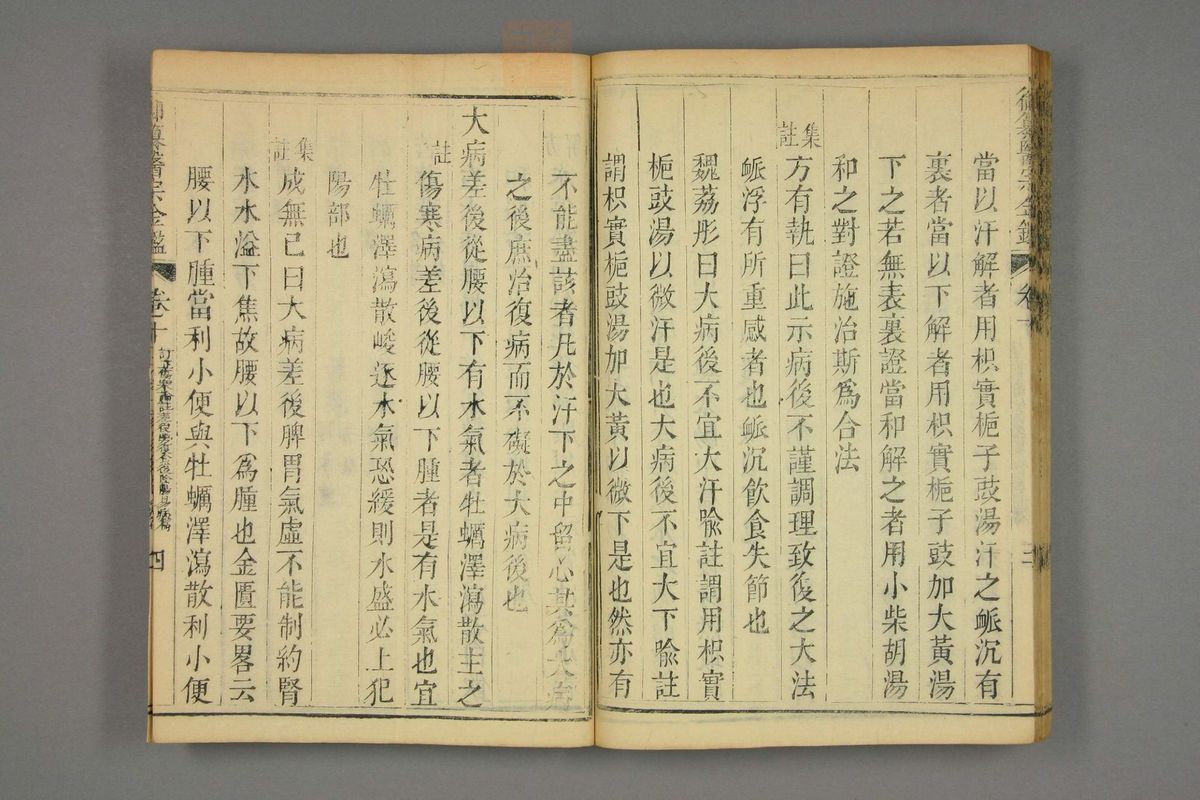 當以汗解者用枳實梔子豉湯汗之衇沉有
裏者當以下解者用枳實梔子豉加大黃湯
下之若無表裏證當和解之者用小柴胡湯
和之對證施治斯爲合法
集註
方有執曰此示病後不謹調理致復之大法
衇浮有所重感者也衇沉飮食失節也
魏荔彤曰大病後不宜大汗喩註謂用枳實
梔豉湯以微汗是也大病後不宜大下喩註
謂枳實梔豉湯加大黃以微下是也然亦有
不能盡該者凡於汗下之中留心其爲大病
之後庶治復病而不礙於大病後也
大病差後從腰以下有水氣者牡蠣澤瀉散主之
註
傷寒病差後從腰以下腫者是有水氣也宜
牡蠣澤瀉散峻逐水氣恐緩則水盛必上犯
陽部也
集註
成無己曰大病差後脾胃氣虛不能制約腎
水水溢下焦故腰以下爲腫也金匱要畧云
腰以下腫當利小便與牡蠣澤瀉散利小便
御纂醫宗金鑑
卷十
四